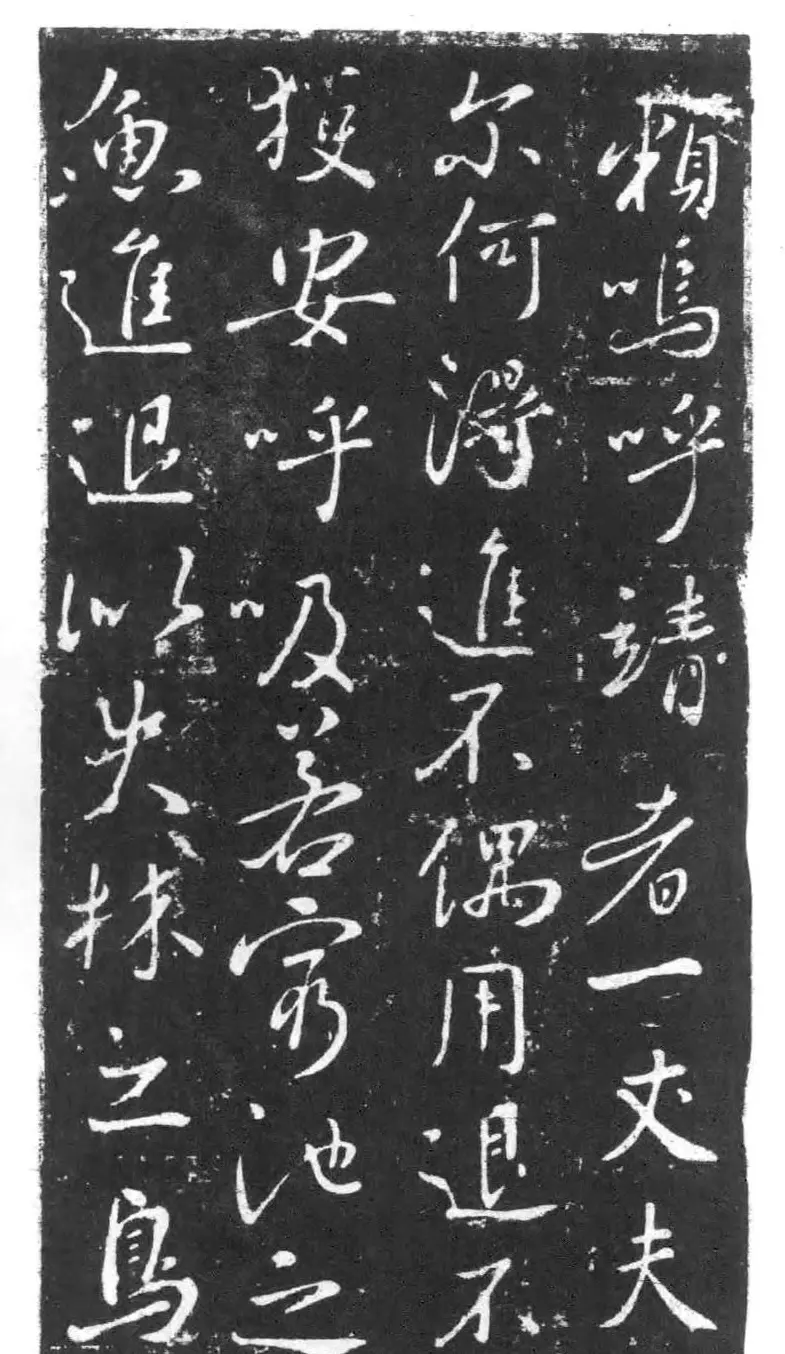 賴嗚呼靖者一丈夫
尔何得進不偶用退不
獲安呼吸若窮池之
魚進退似失林之鳥